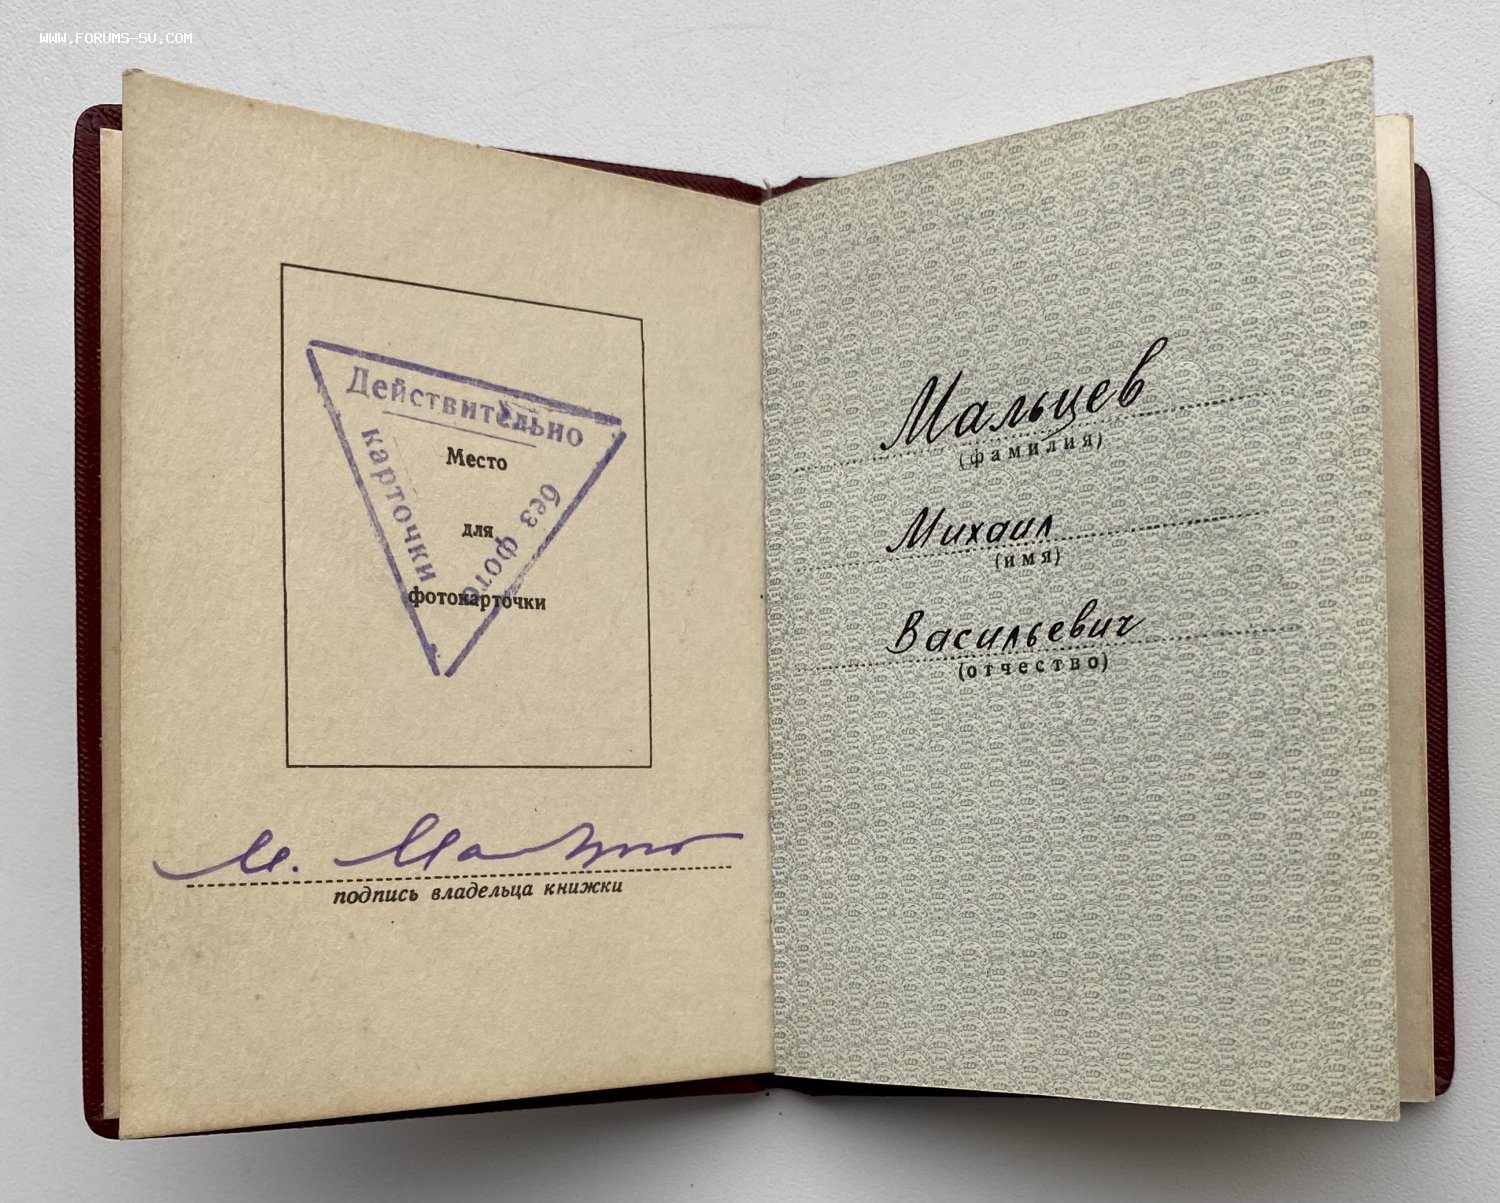 WWW.FORUMS-SU.COM
Действительно
без фото
карточки
Место
для
фотокарточки
М.
подпись владельца книжки
Мальцев
(фамилия)
Михаил
(имя)
Васильевич
(отчество)